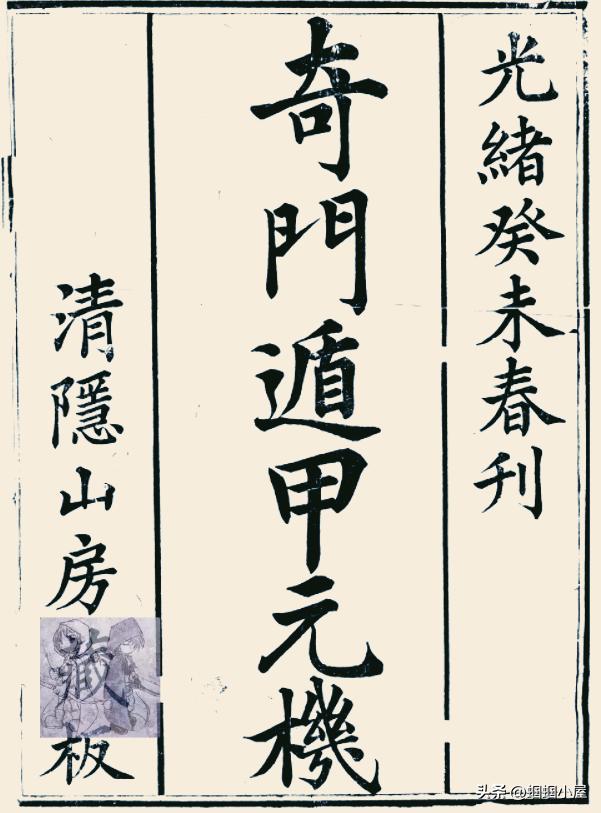 光緒癸未春刊
奇門遁甲元機
清隱山房藏板
头条 @蝈蝈小屋